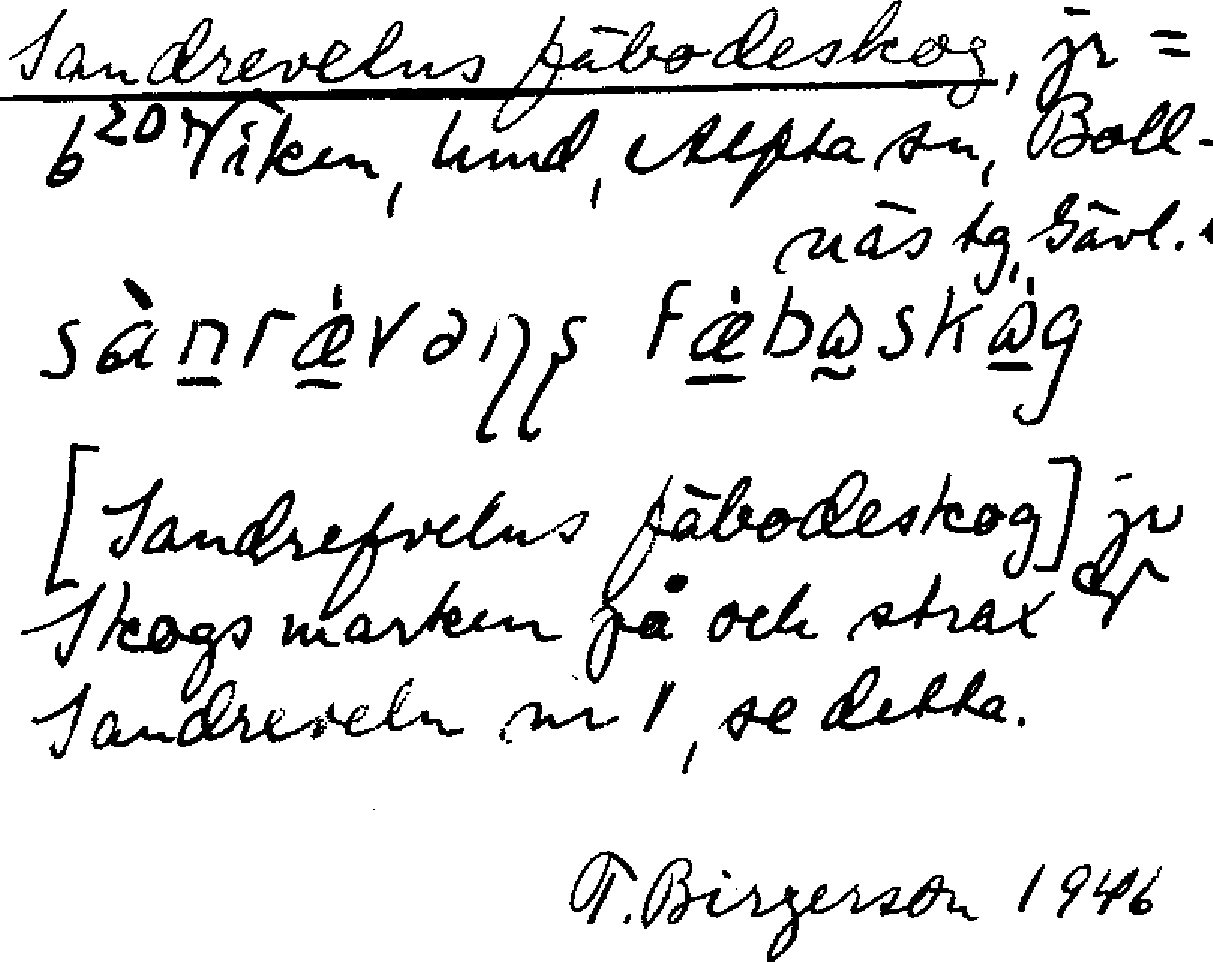 Sandrevelns fäbodeskog, jr =
b20 Viken, hmd, Alfta sn, Boll-
näs tg, Gävl.
sànrǽvəηs fǽbωskὼg
[Sandrefvelns fäbodeskog] jr
Skogsmarken på och strax
Sandreveln nr 1, se detta.
T. Birgerson 1946